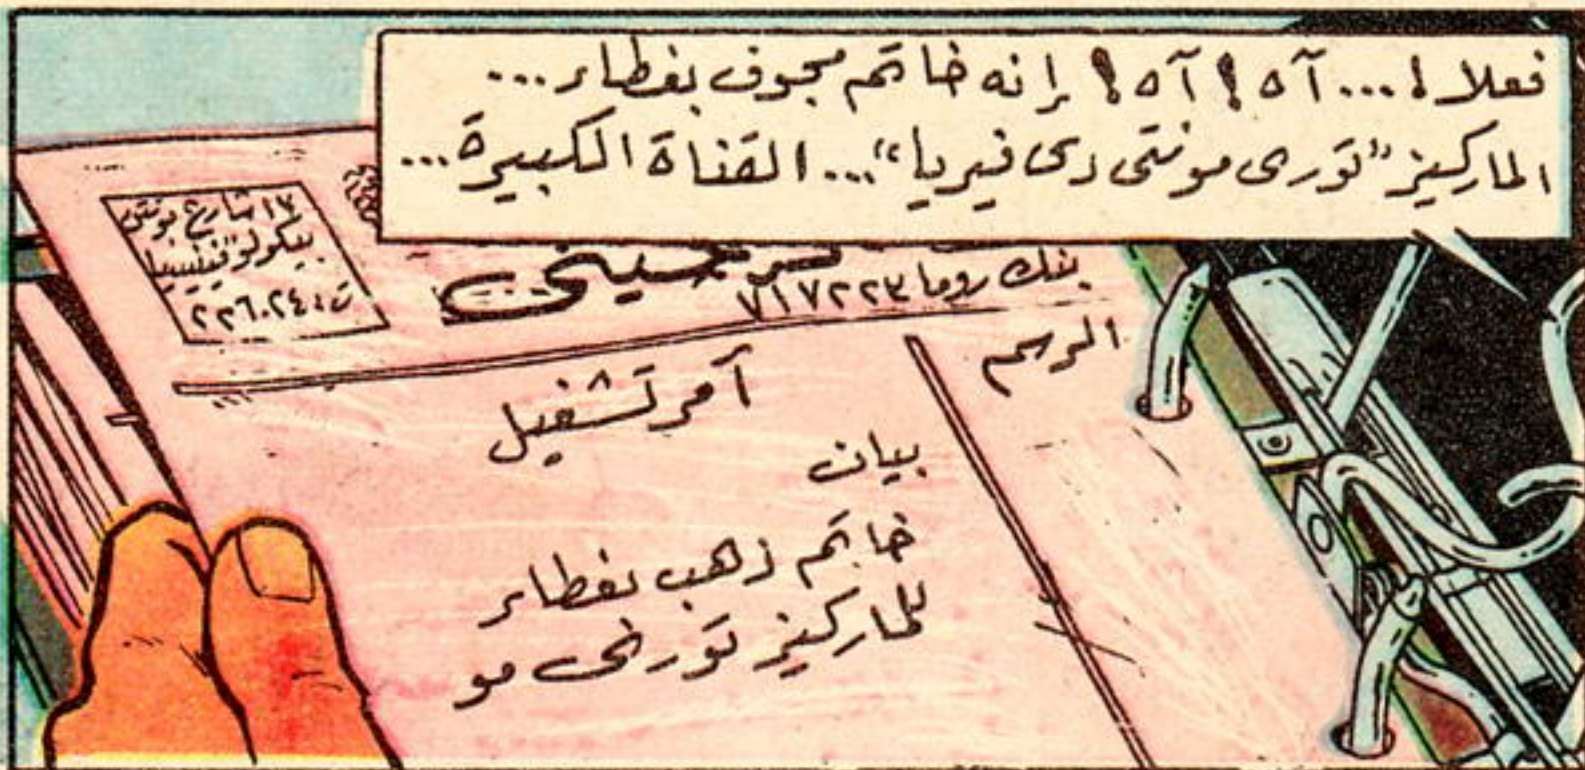 فعلا!... آه! آه! إنه خاتم مجوف بغطاء...
الماركيز "توري مونتى دى فيريا"... القناة الكبيرة...
١٧ شارع بونتى
بيكولو فينيسيا
ت: ٢٢٦٠٢٤
بنك روما ٧١٧٢٢٣
الرسم
أمر تشغيل
بيان
خاتم ذهب بغطاء
للماركيز تورى مو